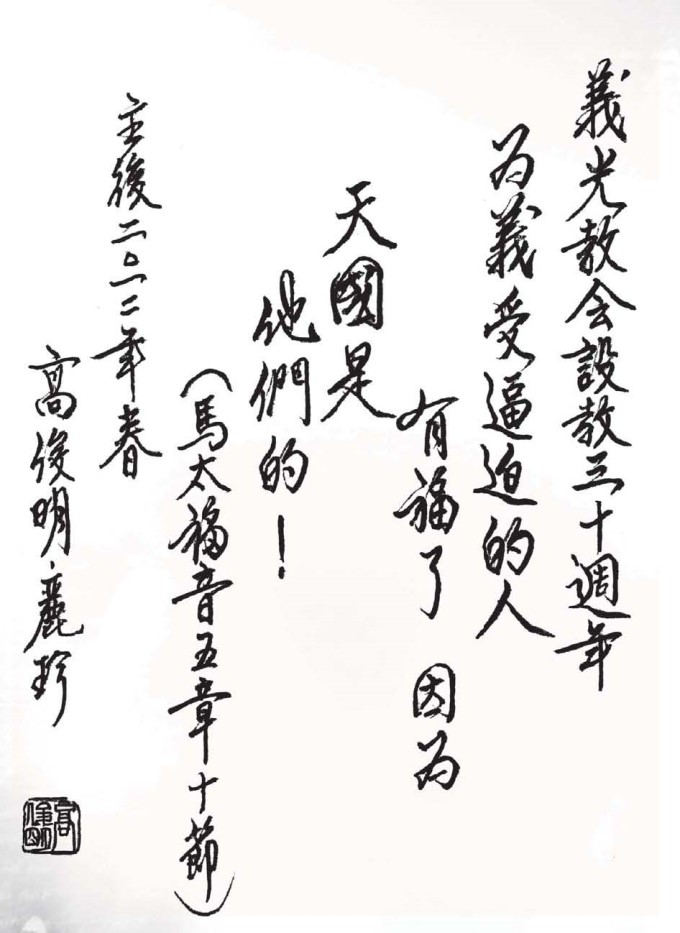 義光教会設教三十週年
为義受逼迫的人
有福了 因为
天國是
他們的！
（馬太福音五章十節）
主後二〇一二年春
高俊明、麗珍
高俊明